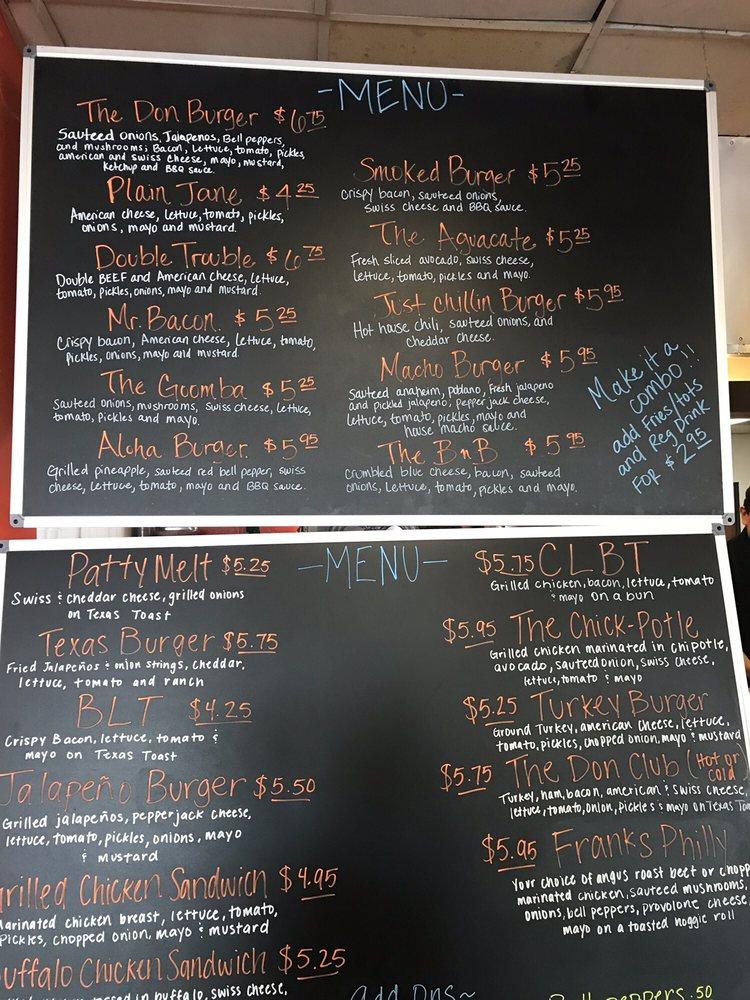 -MENU-
The Don Burger $6.75
Sauteed onions, Jalapenos, Bell peppers,
and mushrooms; Bacon, lettuce, tomato, pickles,
american and swiss cheese, mayo, mustard,
ketchup and BBQ sauce.
Plain Jane $4.25
American cheese, lettuce, tomato, pickles,
onions, mayo and mustard.
Double Trouble $6.75
Double BEEF and American cheese, lettuce,
tomato, pickles, onions, mayo and mustard.
Mr. Bacon. $5.25
Crispy bacon, American cheese, lettuce, tomato,
Pickles, onions, mayo and mustard.
The Goomba $5.25
Sauteed onions, mushrooms, Swiss cheese, lettuce,
tomato, Pickles and mayo.
Aloha Burger. $5.95
Grilled pineapple, sauteed red bell pepper, swiss
cheese, lettuce, tomato, mayo and BBQ sauce.
Smoked Burger $5.25
crispy bacon, sauteed onions,
Swiss cheese and BBQ sauce.
The Aguacate $5.25
Fresh sliced avocado, swiss cheese,
lettuce, tomato, pickles and mayo.
Just chillin Burger $5.95
Hot house chili, sauteed onions, and
cheddar cheese.
Macho Burger $5.95
Sauteed anaheim, poblano, fresh jalapeno
and pickled jalapeno, pepper jack cheese,
lettuce, tomato, pickles, mayo and
house macho sauce.
The BnB $5.95
Crumbled blue cheese, bacon, sauteed
onions, Lettuce, tomato, pickles and mayo.
Make it a
combo!!
add Fries/tots
and Reg Drink
FOR $2.95
-MENU-
Patty Melt $5.25
Swiss & cheddar cheese, grilled onions
on Texas Toast
Texas Burger $5.75
Fried Jalapeños & onion strings, cheddar,
lettuce, tomato and ranch
BLT $4.25
Crispy Bacon, lettuce, tomato &
mayo on Texas Toast
Jalapeño Burger $5.50
Grilled jalapeños, pepperjack cheese,
lettuce, tomato, pickles, onions, mayo
& mustard
rilled Chicken Sandwich $4.95
Marinated chicken breast, lettuce, tomato,
Pickles, chopped onion, mayo & mustard
uffalo Chicken Sandwich $5.25
in buffalo, swiss cheese,
$5.75 CLBT
Grilled chicken, bacon, lettuce, tomato
& mayo on a bun
$5.95 The Chick-Potle
Grilled chicken marinated in chipotle,
avocado, sauteed onion, swiss cheese,
lettuce, tomato & mayo
$5.25 Turkey Burger
Ground Turkey, american cheese, lettuce,
tomato, pickles, chopped onion, mayo & mustard
$5.75 The Don Club (Hot or
cold)
Turkey, ham, bacon, american & swiss cheese,
lettuce, tomato, onion, pickles & mayo on Texas Toa
$5.95 Franks Philly
Your choice of angus roast beef or chopp
marinated chicken, sauteed mushrooms,
onions, bell peppers, provolone cheese,
mayo on a toasted hoggie roll
add ons~
Bell peppers .50